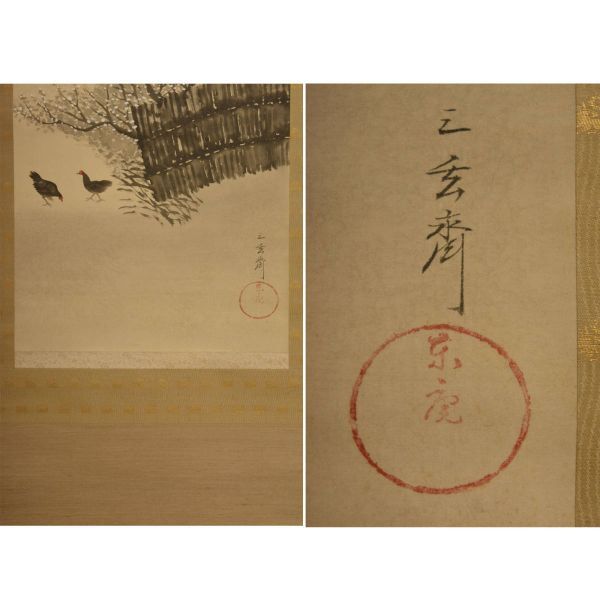 三玄齋
東虎
三玄齋
東虎